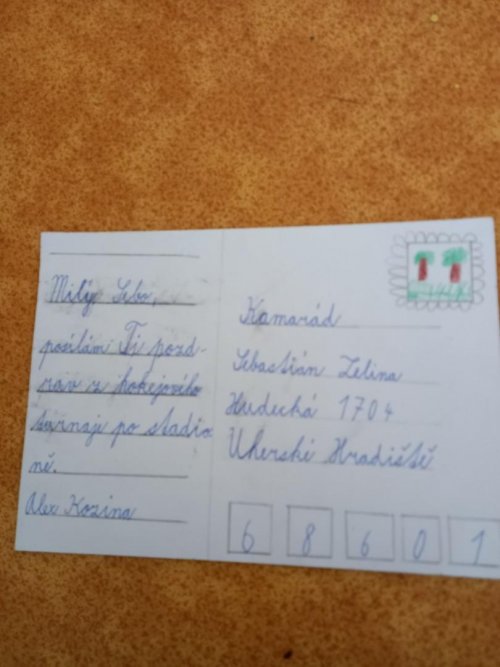 Milý Sebo,
posílám Ti pozd-
rav z hokejového
turnaje po stadio
ně.
Alex Kozina
Kamarád
Sebastián Zelina
Hudecká 1704
Uherské Hradiště
6 8 6 0 1